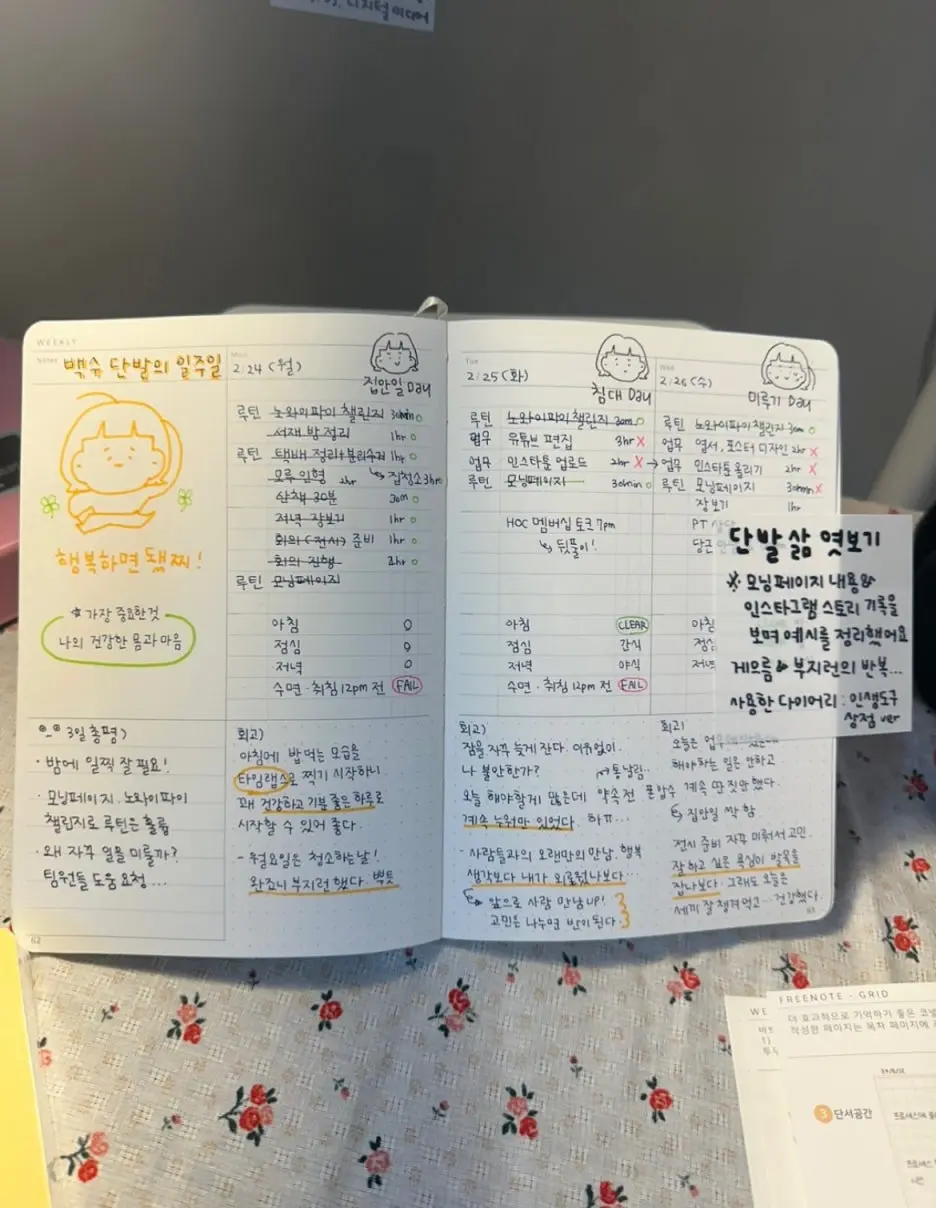 디지털 미디어
WEEKLY
Notes
백수 단발의 일주일
행복하면 됐찌!
가장 중요한것
나의 건강한 몸과 마음
3일 총평)
· 밤에 일찍 잘 필요!
· 모닝페이지, 노와이파이
챌린지로 루틴은 훌륭
· 왜 자꾸 일을 미룰까?
팀원들 도움 요청...
62
Mon
2/24 (월)
집안일 Day
루틴 노와이파이 챌린지 30min
서재 방 정리 1hr
루틴 택배 정리+분리수거 1hr
모루 인형 2hr ↳ 집청소 3hr
산책 30분 30m
저녁 장보기 1hr
회의 (전시) 준비 1hr
회의 진행 2hr
루틴 모닝페이지
아침 O
점심 O
저녁 O
수면·취침 12pm 전 FAIL
회고)
아침에 밥 먹는 모습을
타임랩스로 찍기 시작하니
꽤 건강하고 기분 좋은 하루로
시작할 수 있어 좋다.
- 월요일은 청소하는 날!
완죠니 부지런했다. 뿌듯
Tue
2/25 (화)
침대 Day
루틴 노와이파이 챌린지 30m O
업무 유튜브 편집 3hr X
업무 인스타툰 업로드 2hr X
루틴 모닝페이지 30min O
HOC 멤버십 토크 7pm
↳ 뒷풀이!
아침 CLEAR
점심 간식
저녁 야식
수면·취침 12pm 전 FAIL
회고)
잠을 자꾸 늦게 잔다. 이유없이.
나 불안한가?
오늘 해야할게 많은데 약속 전
계속 누워만 있었다. 하ㅠ...
- 사람들과의 오랜만의 만남. 행복
생각보다 내가 외로웠나보다...
앞으로 사람 만남 UP!
고민은 나누면 반이 된다.
Wed
2/26 (수)
미루기 Day
루틴 노와이파이 챌린지 30m O
업무 엽서, 포스터 디자인 2hr X
→ 업무 인스타툰 올리기 2hr X
루틴 모닝페이지 30min X
장보기 1hr
PT
당근
아침
점심
저녁
회고)
오늘은
해야하는 일은 안하고
계속 딴 짓만 했다.
↳ 집안일 싹 함
전시 준비 자꾸 미뤄서 고민.
잘하고 싶은 욕심이 발목을
잡나보다. 그래도 오늘은
세끼 잘 챙겨 먹고... 건강했다.
63
단발 삶 엿보기
※ 모닝페이지 내용 &
인스타그램 스토리 기록을
보며 예시를 정리했어요
게으름 & 부지런의 반복...
사용한 다이어리 : 인생도구
상점 ver
FREENOTE · GRID
더 효과적으로 기억하기 좋은 코넬
작성한 페이지는 목차 페이지에
3 단서공간